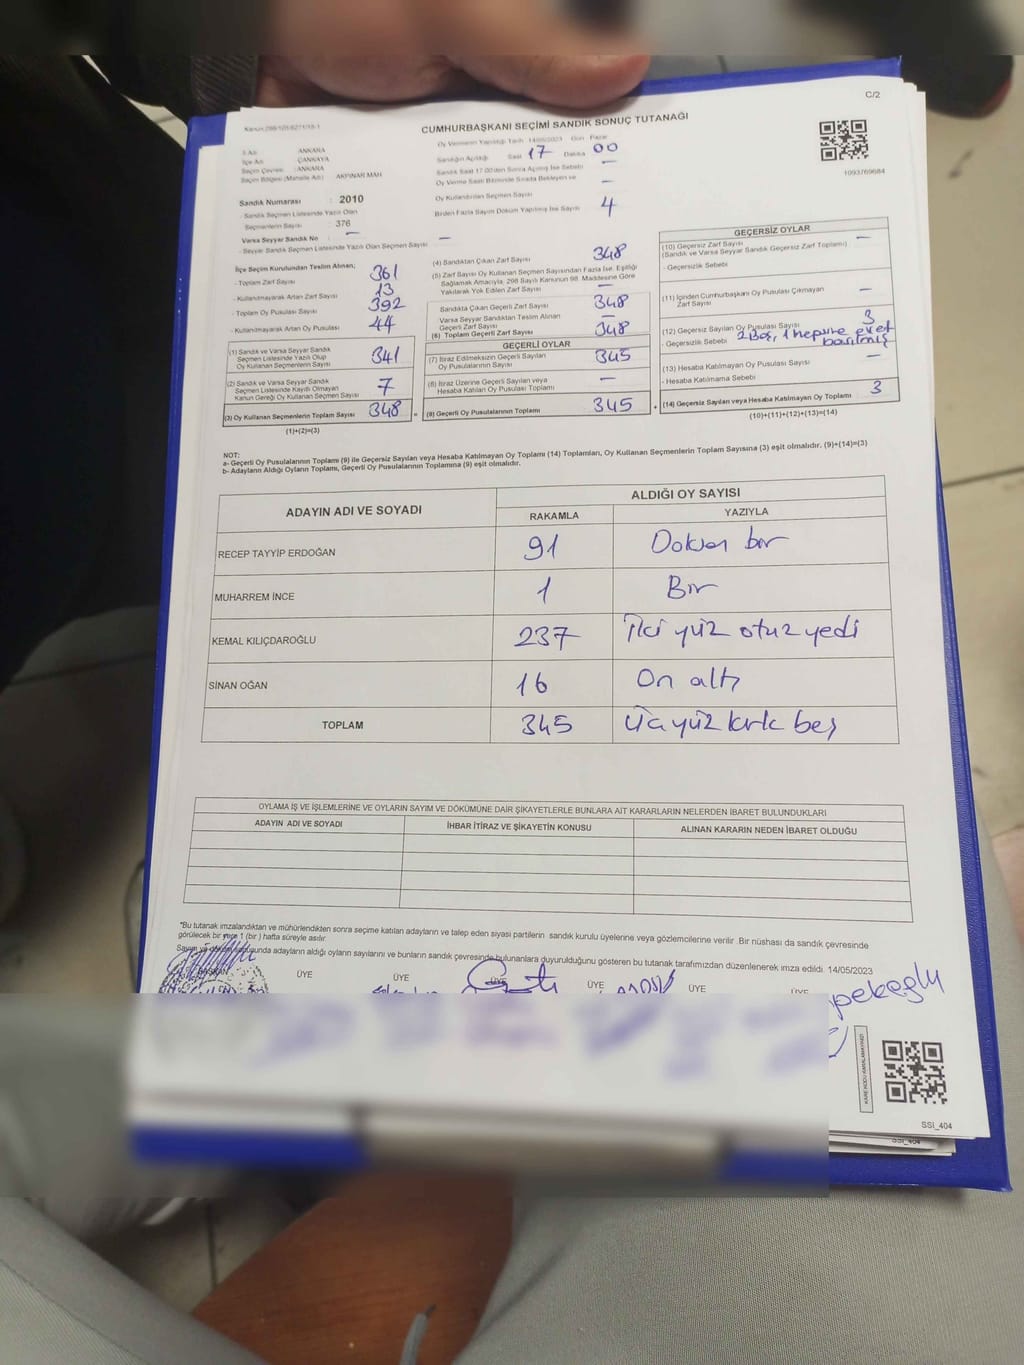 C/2
Kanun:298/105/6271/18-1
CUMHURBAŞKANI SEÇİMİ SANDIK SONUÇ TUTANAĞI
İl Adı : ANKARA
İlçe Adı : ÇANKAYA
Seçim Çevresi : ANKARA
Seçim Bölgesi (Mahalle Adı) : AKPINAR MAH
Sandık Numarası : 2010
- Sandık Seçmen Listesinde Yazılı Olan
Seçmenlerin Sayısı : 376
Varsa Seyyar Sandık No : —
- Seyyar Sandık Seçmen Listesinde Yazılı Olan Seçmen Sayısı : —
Oy Vermenin Yapıldığı Tarih 14/05/2023 Gün Pazar
Sandığın Açıldığı Saat 17 Dakika 00
Sandık Saat 17.00'den Sonra Açılmış İse Sebebi —
Oy Verme Saati Bitiminde Sırada Bekleyen ve
Oy Kullandırılan Seçmen Sayısı —
Birden Fazla Sayım Döküm Yapılmış İse Sayısı 4
1093769684
İlçe Seçim Kurulundan Teslim Alınan;
- Toplam Zarf Sayısı 361
- Kullanılmayarak Artan Zarf Sayısı 13
- Toplam Oy Pusulası Sayısı 392
- Kullanılmayarak Artan Oy Pusulası 44
(1) Sandık ve Varsa Seyyar Sandık
Seçmen Listesinde Yazılı Olup
Oy Kullanan Seçmenlerin Sayısı 341
(2) Sandık ve Varsa Seyyar Sandık
Seçmen Listesinde Kayıtlı Olmayan
Kanun Gereği Oy Kullanan Seçmen Sayısı 7
(3) Oy Kullanan Seçmenlerin Toplam Sayısı 348 =
(1)+(2)=(3)
(4) Sandıktan Çıkan Zarf Sayısı 348
(5) Zarf Sayısı Oy Kullanan Seçmen Sayısından Fazla İse, Eşitliği
Sağlamak Amacıyla, 298 Sayılı Kanunun 98. Maddesine Göre
Yakılarak Yok Edilen Zarf Sayısı —
Sandıkta Çıkan Geçerli Zarf Sayısı 348
Varsa Seyyar Sandıktan Teslim Alınan
Geçerli Zarf Sayısı —
(6) Toplam Geçerli Zarf Sayısı 348
GEÇERLİ OYLAR
(7) İtiraz Edilmeksizin Geçerli Sayılan
Oy Pusulalarının Sayısı 345
(8) İtiraz Üzerine Geçerli Sayılan veya
Hesaba Katılan Oy Pusulası Toplamı —
(9) Geçerli Oy Pusulalarının Toplamı 345 +
GEÇERSİZ OYLAR
(10) Geçersiz Zarf Sayısı —
(Sandık ve Varsa Seyyar Sandık Geçersiz Zarf Toplamı)
- Geçersizlik Sebebi
(11) İçinden Cumhurbaşkanı Oy Pusulası Çıkmayan
Zarf Sayısı —
(12) Geçersiz Sayılan Oy Pusulası Sayısı 3
- Geçersizlik Sebebi 2 Boş, 1 hepsine evet
basılmış
(13) Hesaba Katılmayan Oy Pusulası Sayısı —
- Hesaba Katılmama Sebebi
(14) Geçersiz Sayılan veya Hesaba Katılmayan Oy Toplamı 3
(10)+(11)+(12)+(13)=(14)
NOT:
a- Geçerli Oy Pusulalarının Toplamı (9) ile Geçersiz Sayılan veya Hesaba Katılmayan Oy Toplamı (14) Toplamları, Oy Kullanan Seçmenlerin Toplam Sayısına (3) eşit olmalıdır. (9)+(14)=(3)
b- Adayların Aldığı Oyların Toplamı, Geçerli Oy Pusulalarının Toplamına (9) eşit olmalıdır.
ADAYIN ADI VE SOYADI ALDIĞI OY SAYISI
RAKAMLA YAZIYLA
RECEP TAYYİP ERDOĞAN 91 Doksan bir
MUHARREM İNCE 1 Bir
KEMAL KILIÇDAROĞLU 237 iki yüz otuz yedi
SİNAN OĞAN 16 On altı
TOPLAM 345 Üç yüz kırk beş
OYLAMA İŞ VE İŞLEMLERİNE VE OYLARIN SAYIM VE DÖKÜMÜNE DAİR ŞİKAYETLERLE BUNLARA AİT KARARLARIN NELERDEN İBARET BULUNDUKLARI
ADAYIN ADI VE SOYADI İHBAR İTİRAZ VE ŞİKAYETİN KONUSU ALINAN KARARIN NEDEN İBARET OLDUĞU
*Bu tutanak imzalandıktan ve mühürlendikten sonra seçime katılan adayların ve talep eden siyasi partilerin sandık kurulu üyelerine veya gözlemcilerine verilir. Bir nüshası da sandık çevresinde
görülecek bir yere 1 (bir) hafta süreyle asılır.
Sayım ve döküm sonunda adayların aldığı oyların sayılarını ve bunların sandık çevresinde bulunanlara duyurulduğunu gösteren bu tutanak tarafımızdan düzenlenerek imza edildi. 14/05/2023
BAŞKAN ÜYE ÜYE ÜYE ÜYE ÜYE ÜYE
KARE KODU KARALAMAYINIZ!
SSI_404
SSI_404